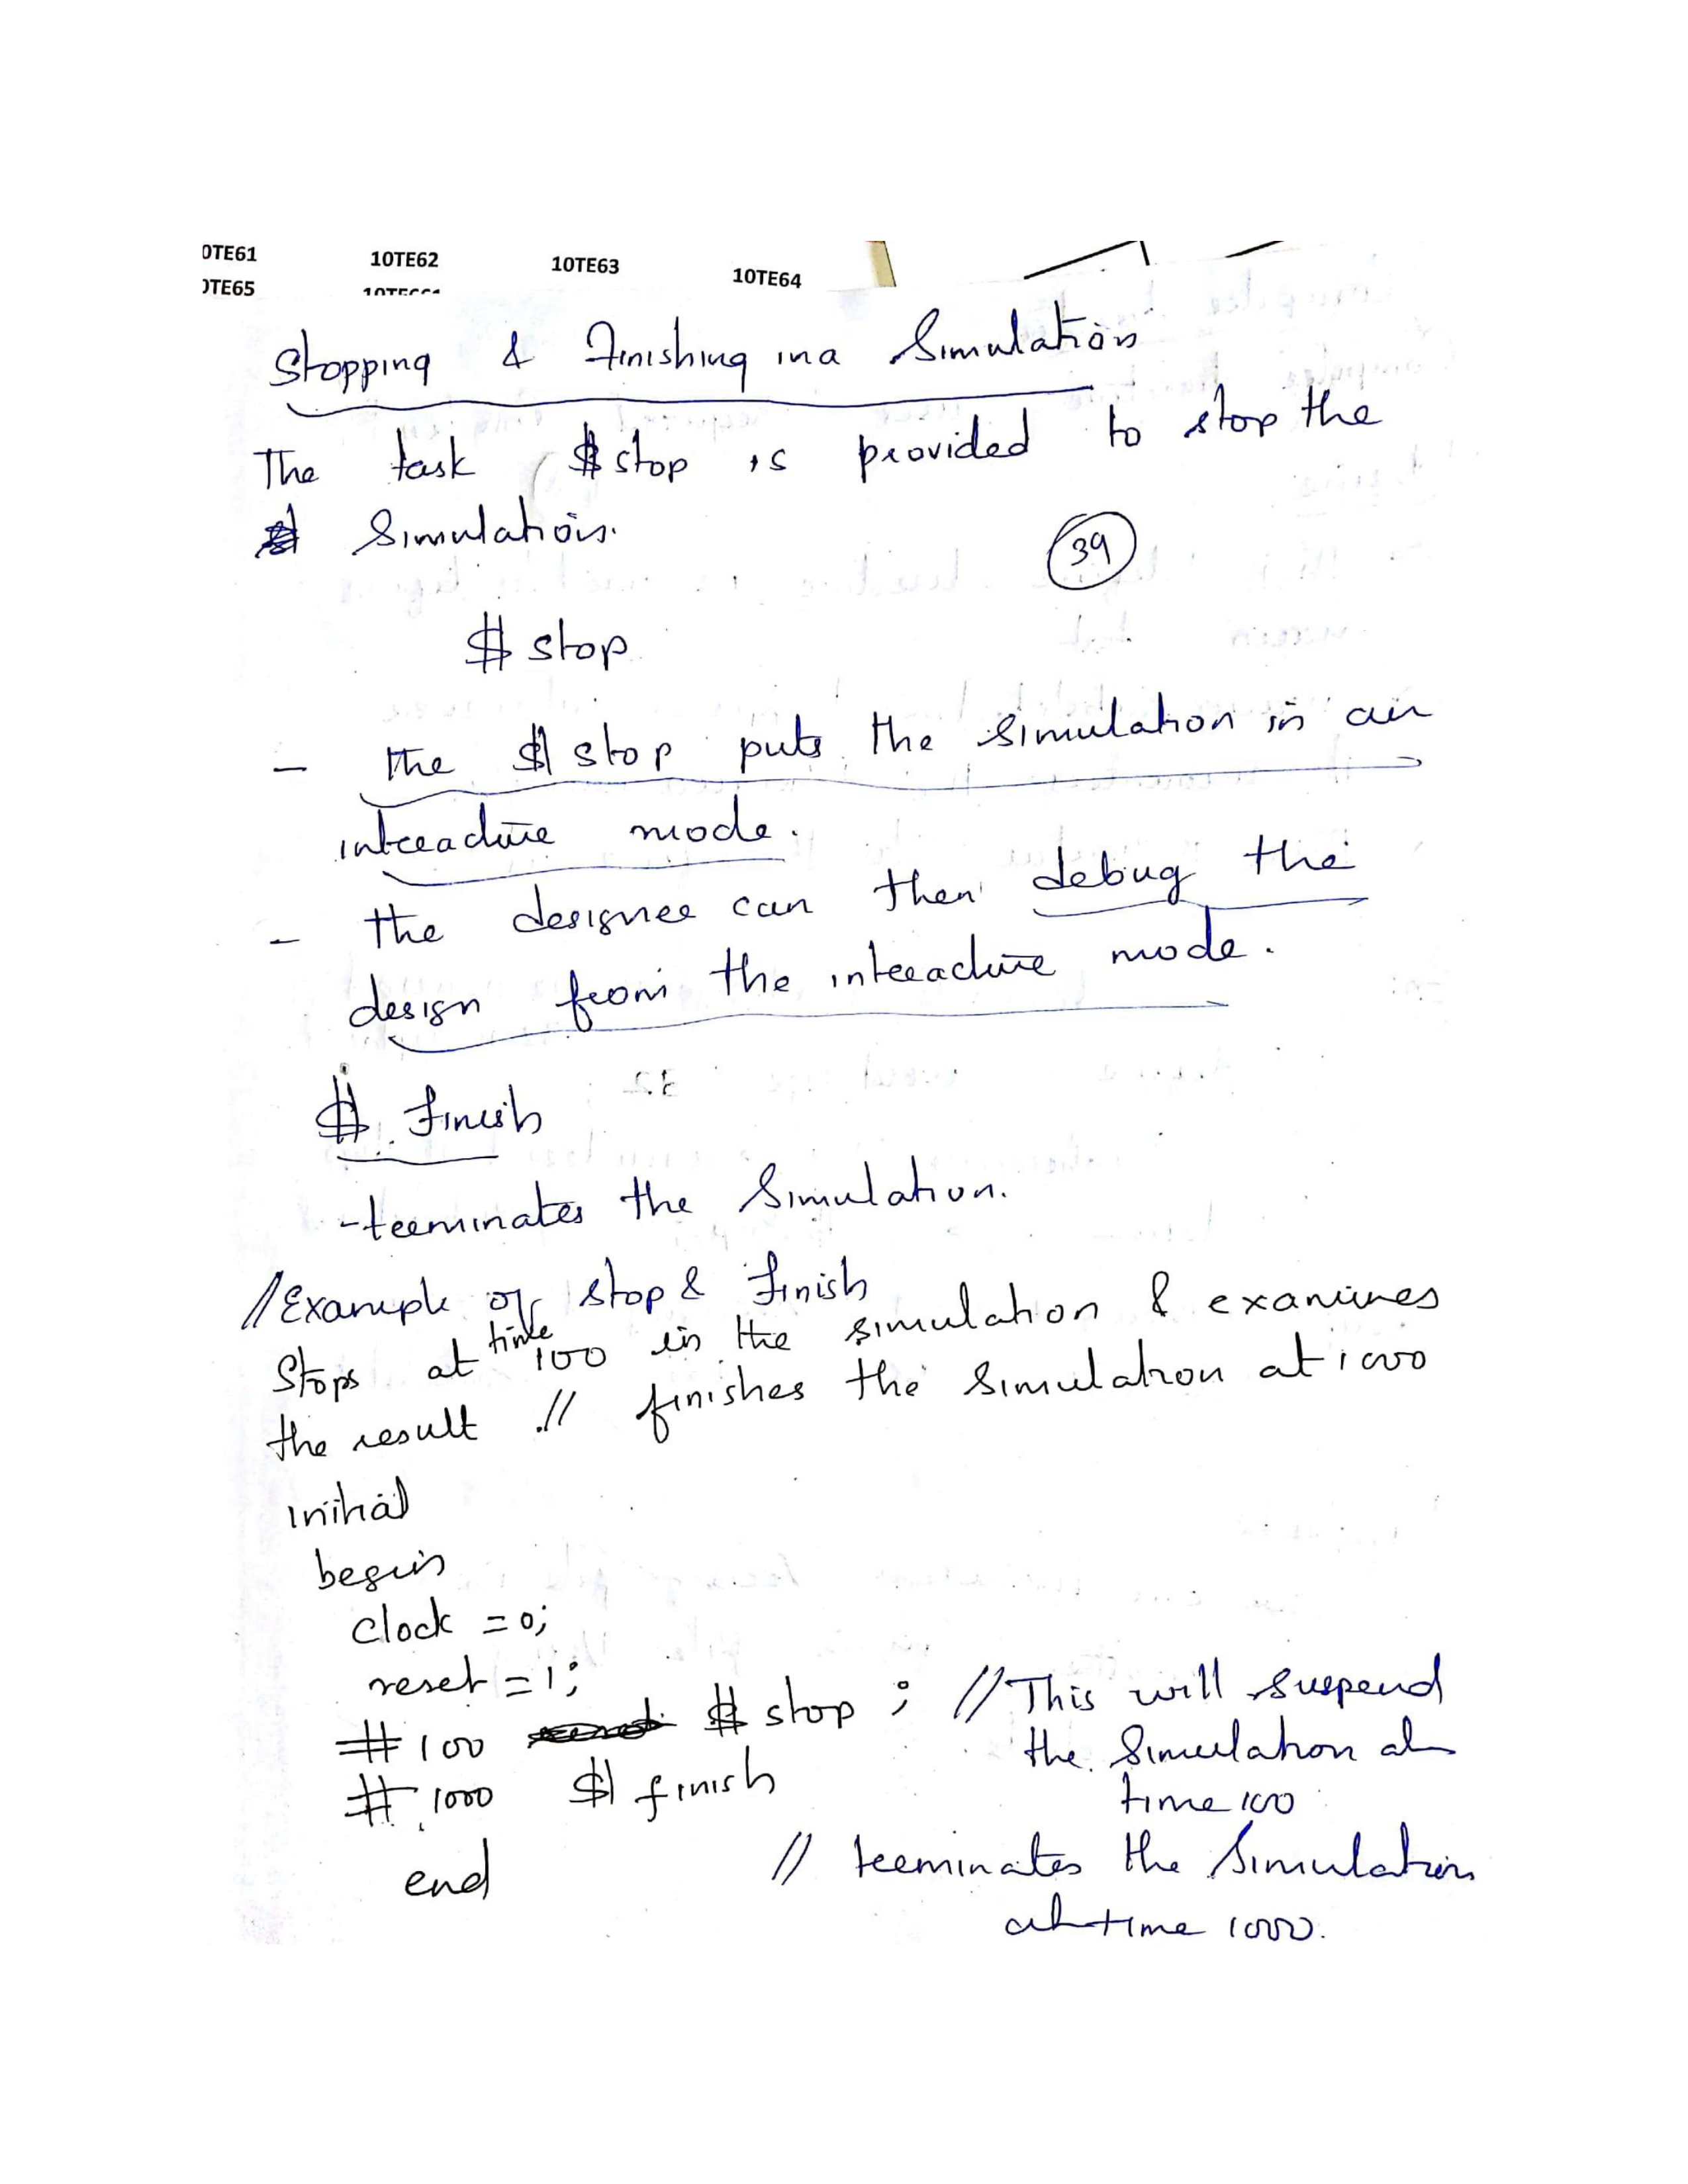 0TE61 10TE62 10TE63 10TE64
0TE65
Stopping & Finishing in a Simulation
The task $stop is provided to stop the
Simulation.
39
$ stop
- the $ stop puts the simulation in an
interactive mode.
- the designer can then debug the
design from the interactive mode.
$ Finish
- terminates the Simulation.
//Example of stop & finish
Stops at time 100 in the simulation & examines
the result // finishes the simulation at 1000
initial
begin
clock = 0;
reset = 1;
#100 $ stop ; // This will suspend
the Simulation at
time 100
#1000 $ finish
// terminates the Simulation
at time 1000.
end